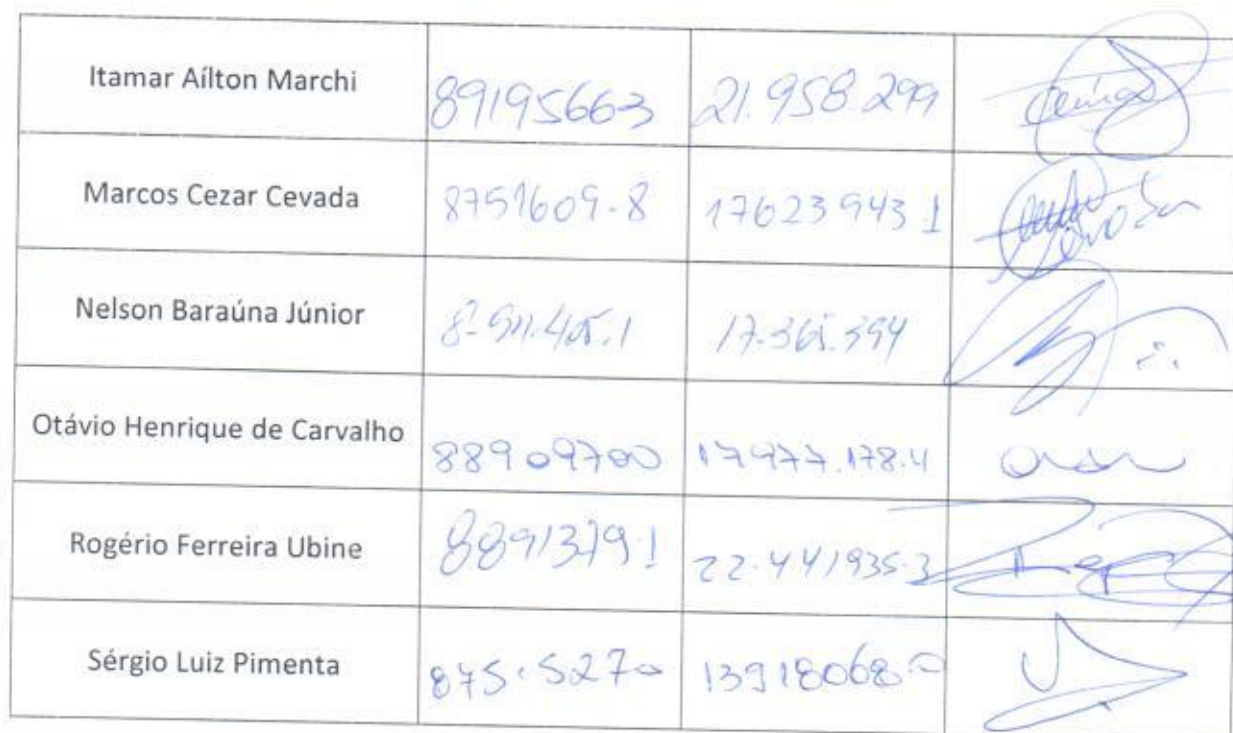 Itamar Aílton Marchi 89195663 21.958.299
Marcos Cezar Cevada 8751609-8 17623943 1
Nelson Baraúna Júnior
Otávio Henrique de Carvalho 88909700 17977.178.4
Rogério Ferreira Ubine 8891379 1 22.441935-3
Sérgio Luiz Pimenta 875.5270 13918068.0